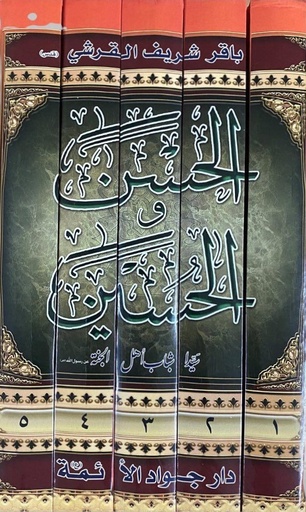 باقر شريف القرشي (قدس)
الحسن
و
الحسين
سيدا شباب أهل الجنة
١ ٢ ٣ ٤ ٥
دار جواد الأئمة (ع)